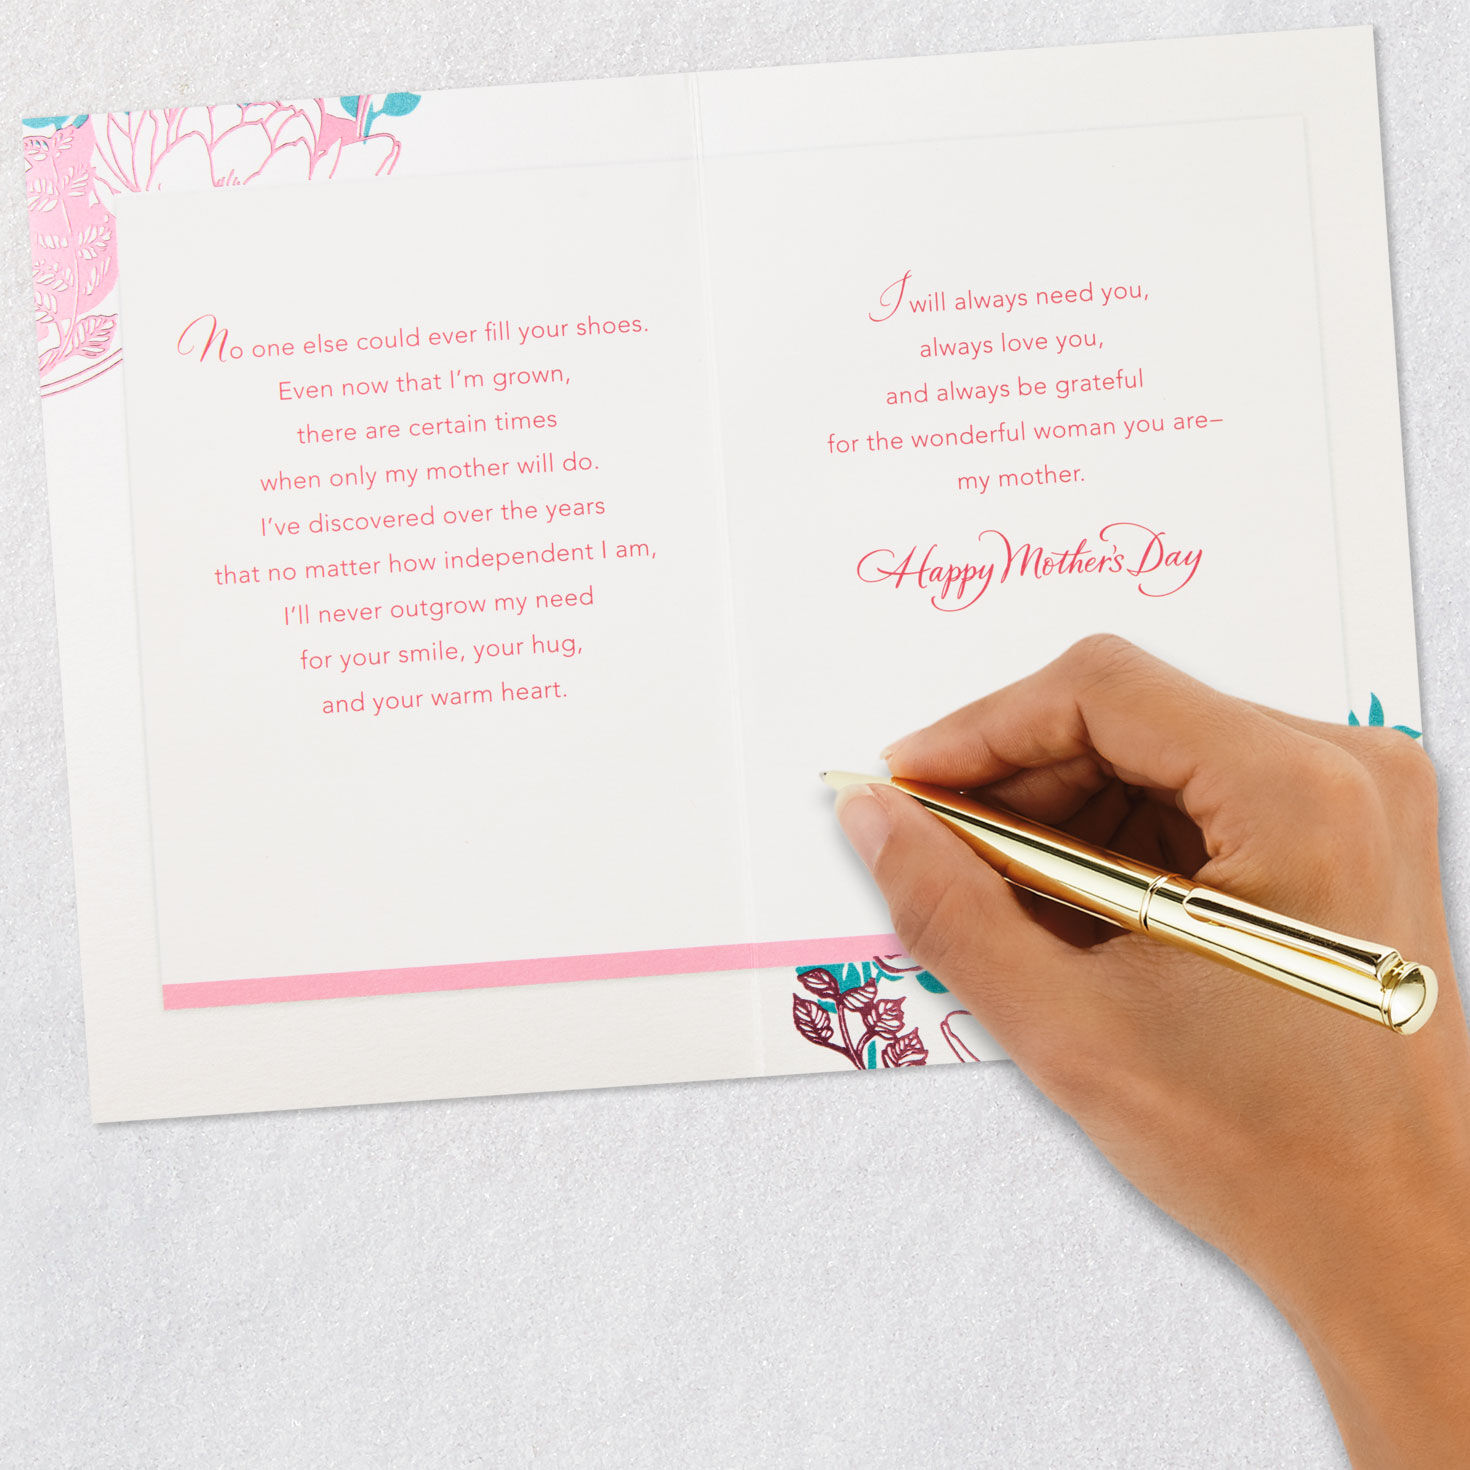 No one else could ever fill your shoes.
Even now that I'm grown,
there are certain times
when only my mother will do.
I've discovered over the years
that no matter how independent I am,
I'll never outgrow my need
for your smile, your hug,
and your warm heart.
I will always need you,
always love you,
and always be grateful
for the wonderful woman you are–
my mother.
Happy Mother's Day